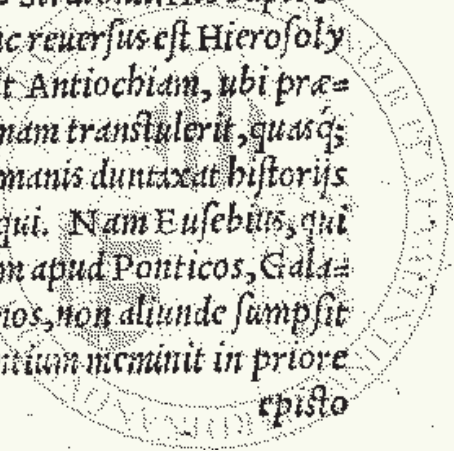 ic reuerſus eſt Hieroſoly
t Antiochiam, ubi præ=
nam tranſtulerit, quasq́;
manis duntaxat hiſtorijs
qui. Nam Euſebius, qui
m apud Ponticos, Gala=
nos, non aliunde ſumpſit
ntium meminit in priore
epiſto